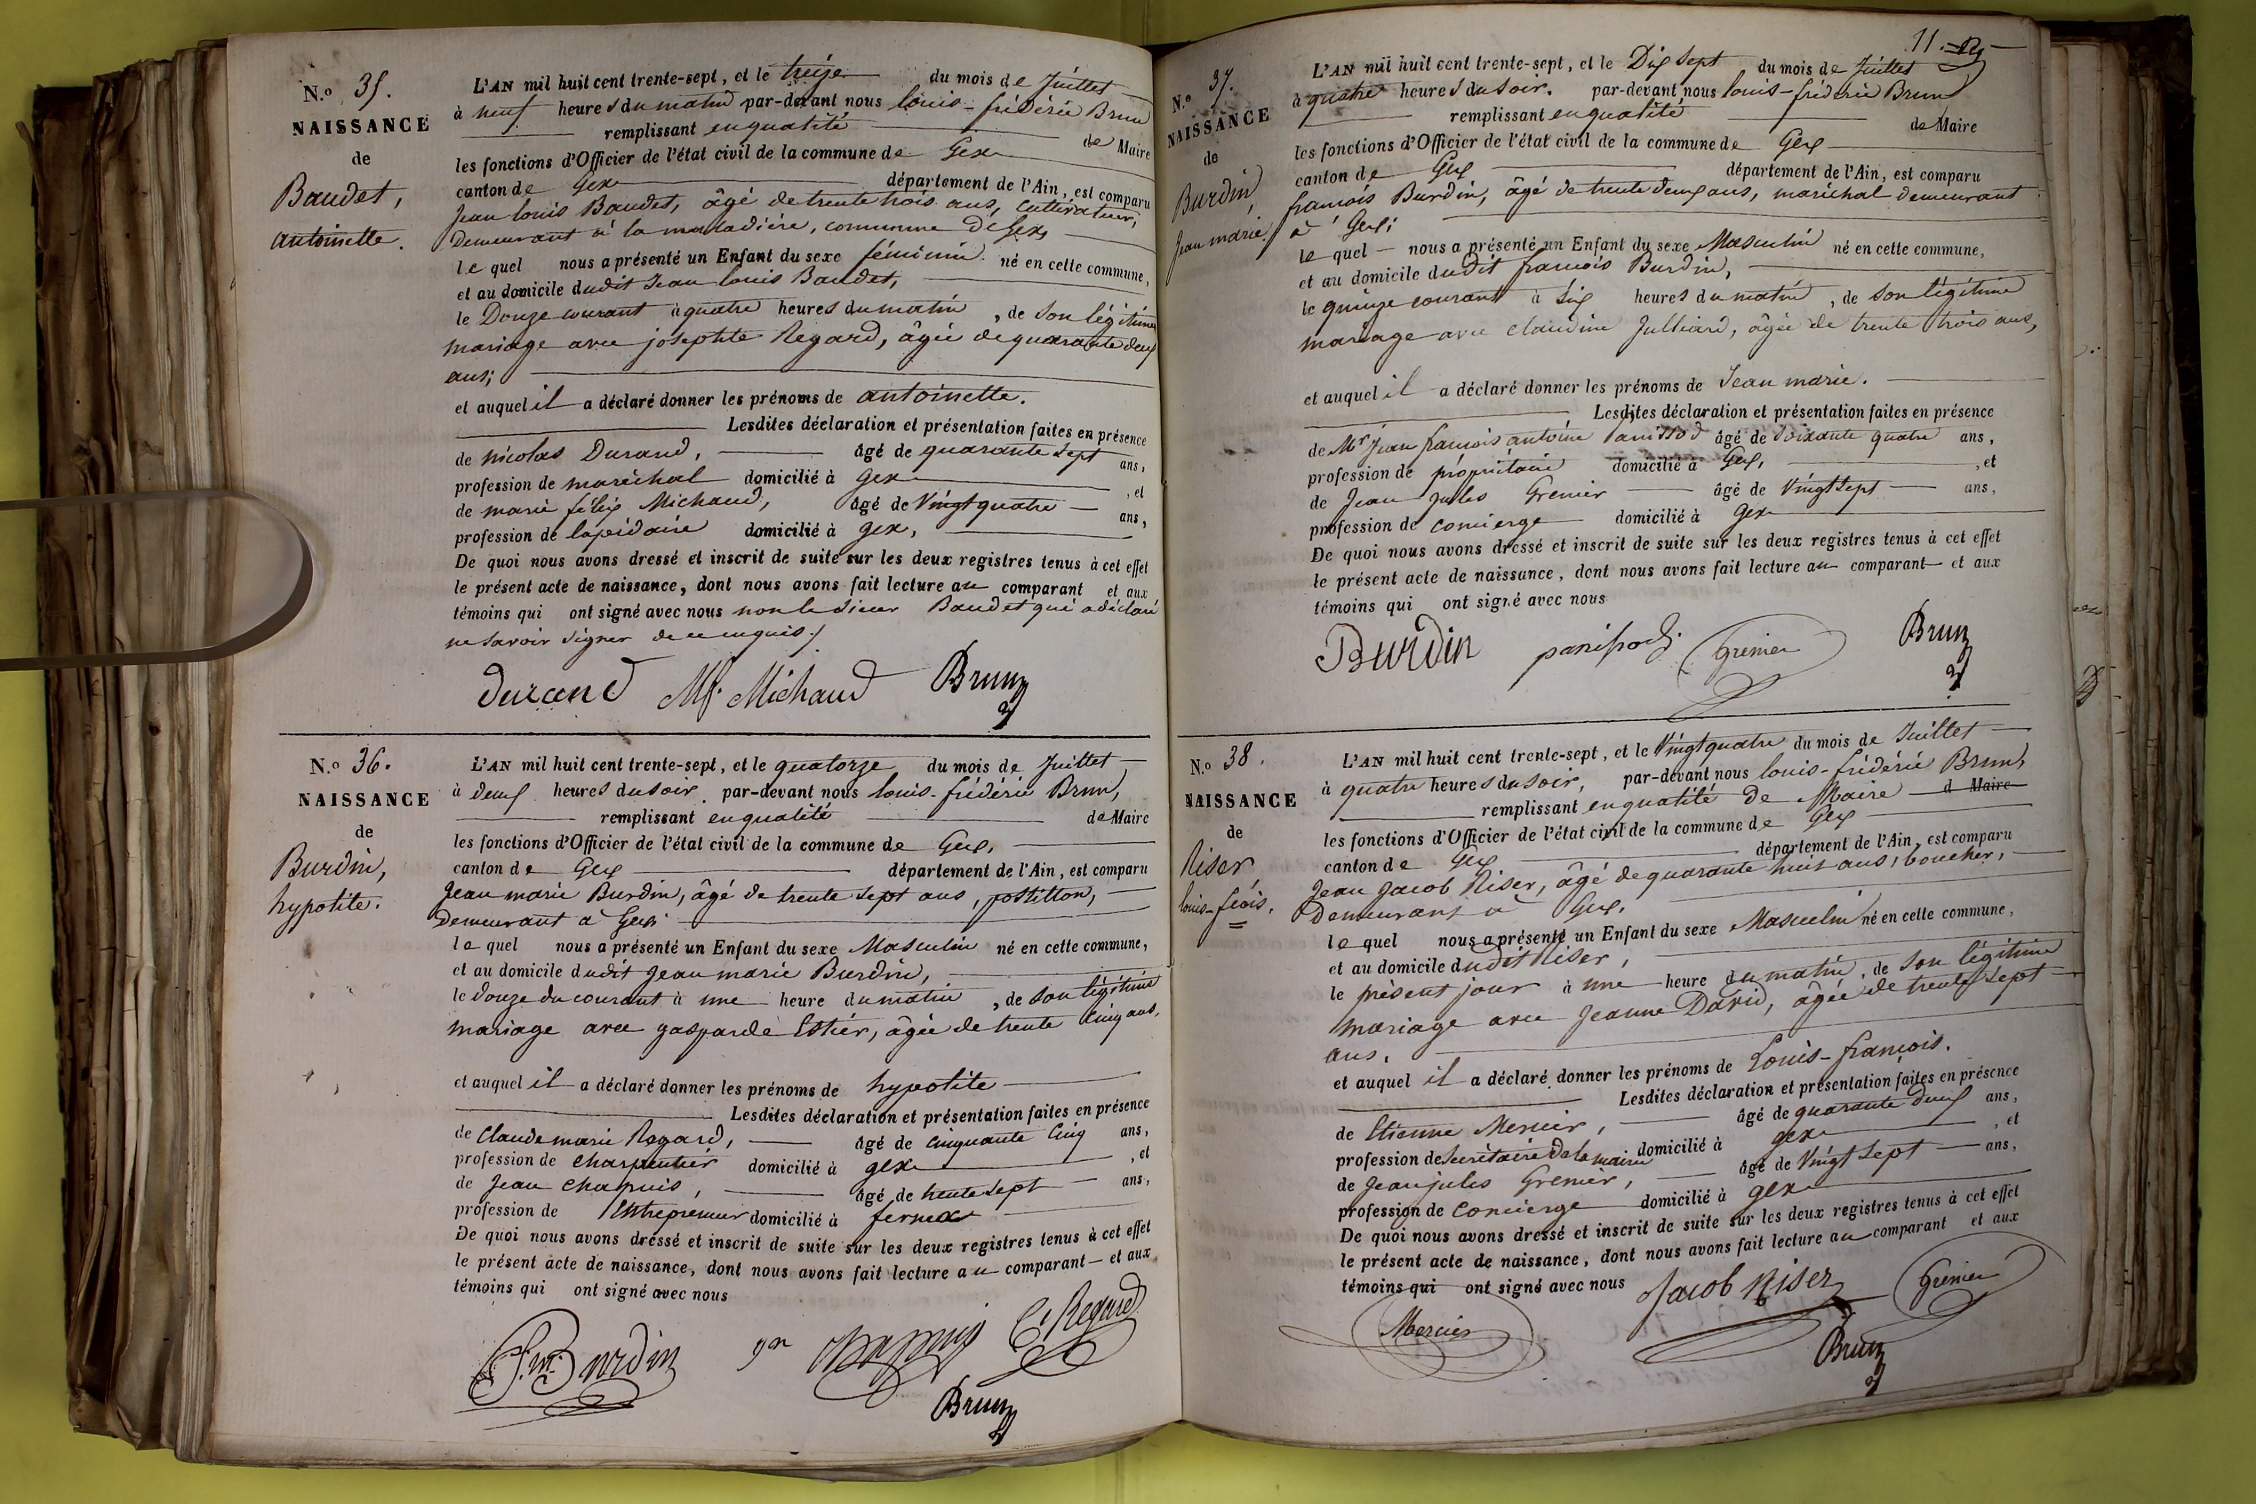 N.º 35.
NAISSANCE
de
Baudet,
antoinette.
L'AN mil huit cent trente-sept, et le treize du mois de Juillet
à neuf heures du matin par-devant nous louis-frédéric Brun
remplissant en qualité de Maire
les fonctions d'Officier de l'état civil de la commune de Gex
canton de Gex département de l'Ain, est comparu
Jean louis Baudet, âgé de trente trois ans, cultivateur,
Demeurant à la maladière, commune de Gex,
le quel nous a présenté un Enfant du sexe féminin né en cette commune,
et au domicile dudit Jean louis Baudet,
le Douze courant à quatre heures du matin, de son légitime
mariage avec josephte Regard, âgée de quarante deux
ans;
et auquel il a déclaré donner les prénoms de antoinette.
Lesdites déclaration et présentation faites en présence
de nicolas Durand, âgé de quarante sept ans,
profession de maréchal domicilié à Gex, et
de marie félix Michaud, âgé de Vingt quatre ans,
profession de lapidaire domicilié à gex,
De quoi nous avons dressé et inscrit de suite sur les deux registres tenus à cet effet
le présent acte de naissance, dont nous avons fait lecture au comparant et aux
témoins qui ont signé avec nous non le sieur Baudet qui a déclaré
ne savoir signer de ce enquis./
durand Mf. Michaud Brun
N.º 36.
NAISSANCE
de
Burdin,
hypolite.
L'AN mil huit cent trente-sept, et le quatorze du mois de Juillet
à deux heures du soir, par-devant nous louis-frédéric Brun,
remplissant en qualité de Maire
les fonctions d'Officier de l'état civil de la commune de Gex,
canton de Gex département de l'Ain, est comparu
Jean marie Burdin, âgé de trente sept ans, postillon,
Demeurant à Gex;
le quel nous a présenté un Enfant du sexe Masculin né en cette commune,
et au domicile dudit Jean marie Burdin,
le douze du courant à une heure du matin, de son légitime
mariage avec gasparde Estier, âgée de trente cinq ans,
et auquel il a déclaré donner les prénoms de hypolite
Lesdites déclaration et présentation faites en présence
de Claude marie Regard, âgé de cinquante cinq ans,
profession de charpentier domicilié à gex, et
de Jean chapuis, âgé de trente sept ans,
profession de Entrepreneur domicilié à fernex
De quoi nous avons dressé et inscrit de suite sur les deux registres tenus à cet effet
le présent acte de naissance, dont nous avons fait lecture au comparant et aux
témoins qui ont signé avec nous
J.m. Burdin jn chapuis C. Regard
Brun
11.
N.º 37.
NAISSANCE
de
Burdin,
Jean marie.
L'AN mil huit cent trente-sept, et le Dix sept du mois de Juillet
à quatre heures du soir, par-devant nous louis-frédéric Brun
remplissant en qualité de Maire
les fonctions d'Officier de l'état civil de la commune de Gex
canton de Gex département de l'Ain, est comparu
françois Burdin, âgé de trente deux ans, maréchal demeurant
à Gex;
le quel nous a présenté un Enfant du sexe Masculin né en cette commune,
et au domicile dudit françois Burdin,
le quinze courant à Six heures du matin, de son légitime
mariage avec claudine Julliard, âgée de trente trois ans,
et auquel il a déclaré donner les prénoms de Jean marie.
Lesdites déclaration et présentation faites en présence
de Mr Jean françois antoine Panissod âgé de soixante quatre ans,
profession de propriétaire domicilié à Gex, et
de Jean Jules Grenier âgé de Vingt sept ans,
profession de concierge domicilié à Gex
De quoi nous avons dressé et inscrit de suite sur les deux registres tenus à cet effet
le présent acte de naissance, dont nous avons fait lecture au comparant et aux
témoins qui ont signé avec nous
Burdin panissod Grenier Brun
N.º 38.
NAISSANCE
de
Riser
louis-fçois.
L'AN mil huit cent trente-sept, et le Vingt quatre du mois de Juillet
à quatre heures du soir, par-devant nous louis-frédéric Brun,
remplissant en qualité de Maire d Maire
les fonctions d'Officier de l'état civil de la commune de Gex
canton de Gex département de l'Ain, est comparu
Jean Jacob Riser, âgé de quarante huit ans, boucher,
Demeurant à Gex,
le quel nous a présenté un Enfant du sexe Masculin né en cette commune,
et au domicile dudit Riser,
le présent jour à une heure du matin, de son légitime
mariage avec Jeanne David, âgée de trente sept
ans,
et auquel il a déclaré donner les prénoms de Louis-françois.
Lesdites déclaration et présentation faites en présence
de Etienne Mercier, âgé de quarante deux ans,
profession de secrétaire de la mairie domicilié à gex, et
de Jean jules Grenier, âgé de Vingt sept ans,
profession de concierge domicilié à gex
De quoi nous avons dressé et inscrit de suite sur les deux registres tenus à cet effet
le présent acte de naissance, dont nous avons fait lecture au comparant et aux
témoins qui ont signé avec nous Jacob Riser Grenier
Mercier Brun